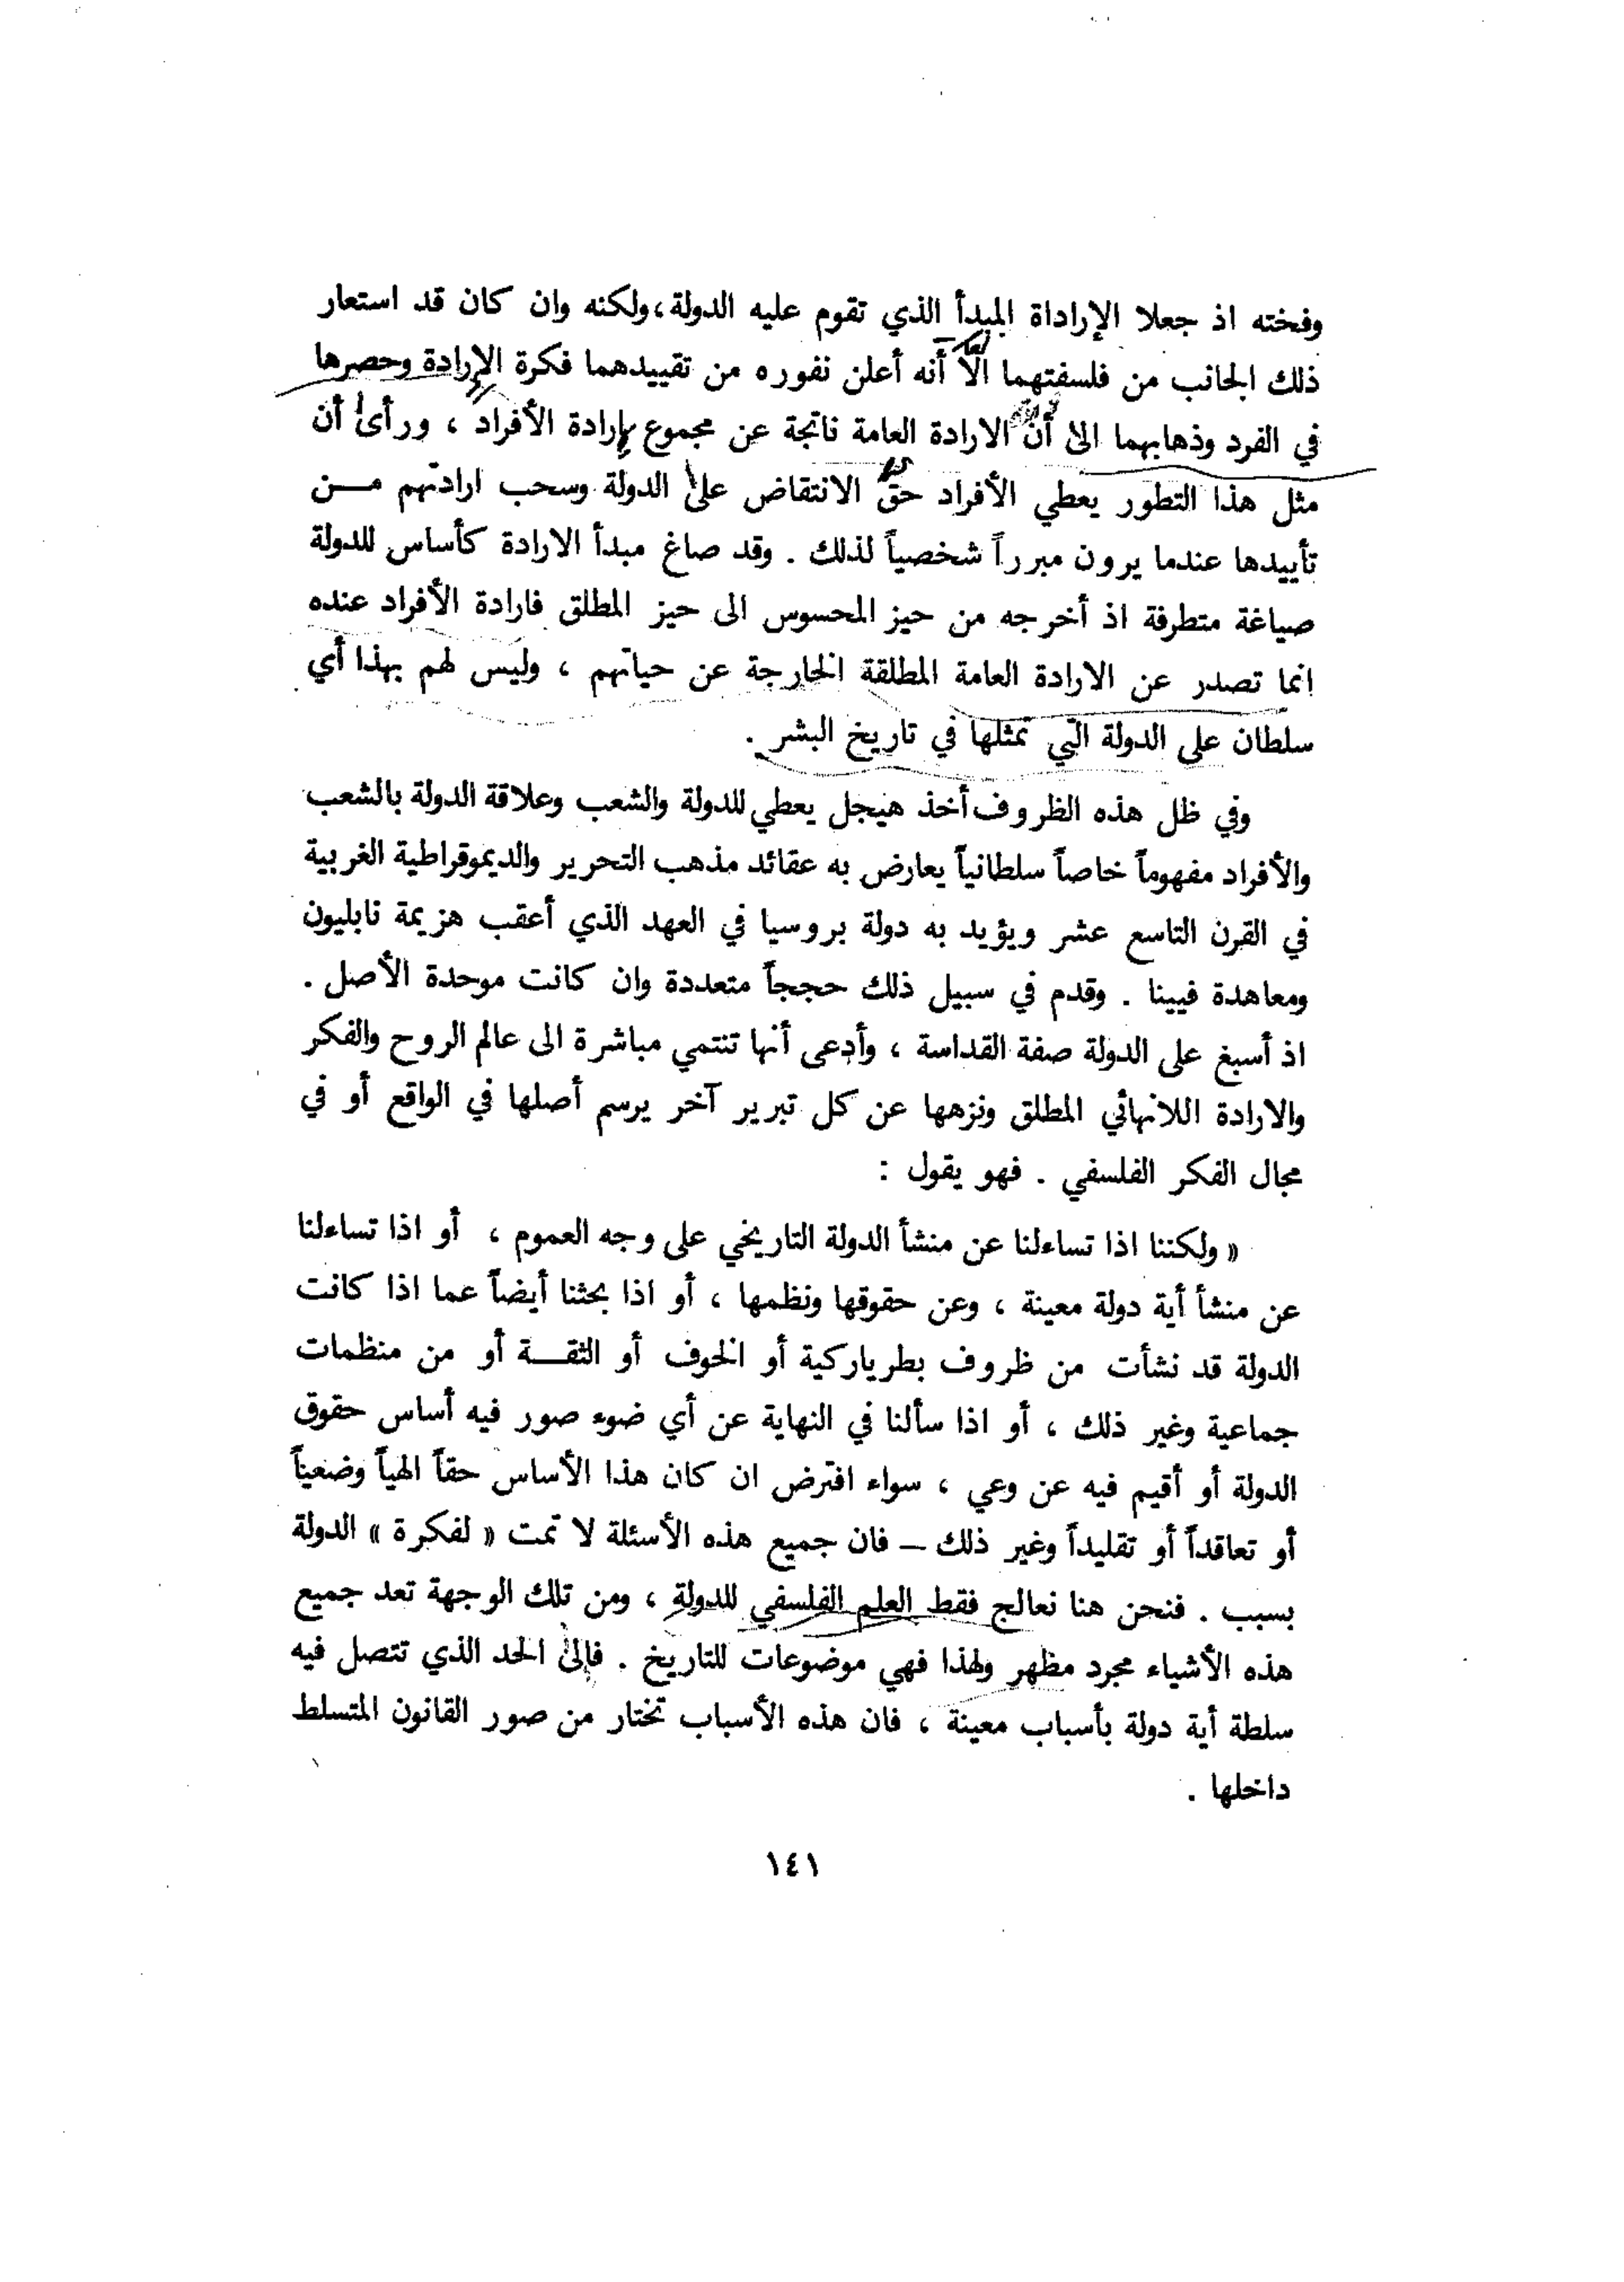 وفخته اذ جعلا الإراداة المبدأ الذي تقوم عليه الدولة، ولكنه وان كان قد استعار
ذلك الجانب من فلسفتهما الّا أنه أعلن نفوره من تقييدهما فكرة الإرادة وحصرها
في الفرد وذهابهما الى أن الارادة العامة ناتجة عن مجموع إرادة الأفراد ، ورأى أن
مثل هذا التطور يعطي الأفراد حق الانتقاض على الدولة وسحب ارادتهم مــن
تأييدها عندما يرون مبرراً شخصياً لذلك . وقد صاغ مبدأ الارادة كأساس للدولة
صياغة متطرفة اذ أخرجه من حيز المحسوس الى حيز المطلق فارادة الأفراد عنده
انما تصدر عن الارادة العامة المطلقة الخارجة عن حياتهم ، وليس لهم بهذا أي
سلطان على الدولة التي تمثلها في تاريخ البشر .
وفي ظل هذه الظروف أخذ هيجل يعطي للدولة والشعب وعلاقة الدولة بالشعب
والأفراد مفهوماً خاصاً سلطانياً يعارض به عقائد مذهب التحرير والديموقراطية الغربية
في القرن التاسع عشر ويؤيد به دولة بروسيا في العهد الذي أعقب هزيمة نابليون
ومعاهدة فيينا . وقدم في سبيل ذلك حججاً متعددة وان كانت موحدة الأصل .
اذ أسبغ على الدولة صفة القداسة ، وأدعى أنها تنتمي مباشرة الى عالم الروح والفكر
والارادة اللانهائي المطلق ونزهها عن كل تبرير آخر يرسم أصلها في الواقع أو في
مجال الفكر الفلسفي . فهو يقول :
« ولكننا اذا تساءلنا عن منشأ الدولة التاريخي على وجه العموم ، أو اذا تساءلنا
عن منشأ أية دولة معينة ، وعن حقوقها ونظمها ، أو اذا بحثنا أيضاً عما اذا كانت
الدولة قد نشأت من ظروف بطرياركية أو الخوف أو الثقــة أو من منظمات
جماعية وغير ذلك ، أو اذا سألنا في النهاية عن أي ضوء صور فيه أساس حقوق
الدولة أو أقيم فيه عن وعي ، سواء افترض ان كان هذا الأساس حقاً الهياً وضعياً
أو تعاقداً أو تقليداً وغير ذلك – فان جميع هذه الأسئلة لا تمت « لفكرة » الدولة
بسبب . فنحن هنا نعالج فقط العلم الفلسفي للدولة ، ومن تلك الوجهة تعد جميع
هذه الأشياء مجرد مظهر ولهذا فهي موضوعات للتاريخ . فإلى الحد الذي تتصل فيه
سلطة أية دولة بأسباب معينة ، فان هذه الأسباب تختار من صور القانون المتسلط
داخلها .
١٤١